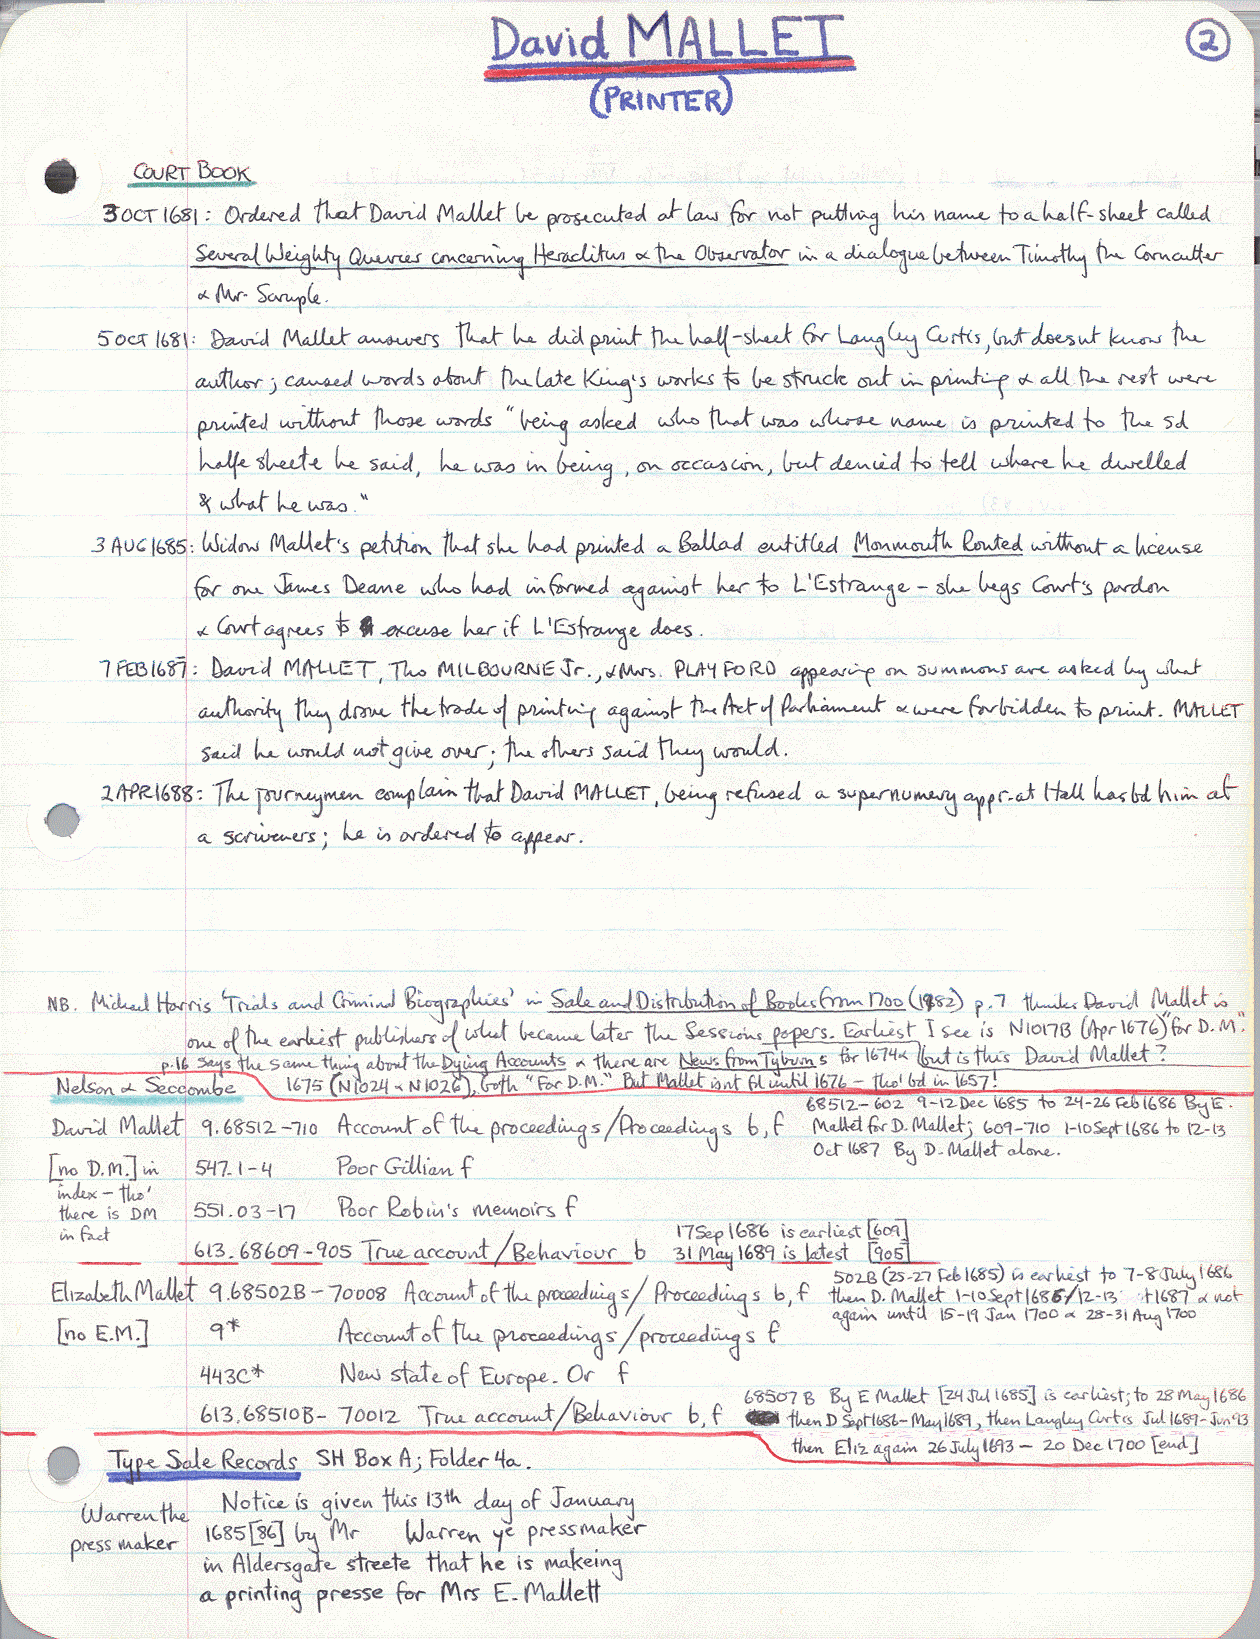 David MALLET
2
(PRINTER)
COURT BOOK
3 OCT 1681: Ordered that David Mallet be prosecuted at law for not putting his name to a half-sheet called
Several Weighty Quevies concerning Heraclitus & the Observator in a dialogue between Timothy the Corncutter
& Mr. Scruple.
5 OCT 1681: David Mallet answers that he did print the half-sheet for Langley Curtis, but doesnt know the
author; caused words about the late King's works to be struck out in printing & all the rest were
printed without those words "being asked who that was whose name is printed to the sd
halfe sheete he said, he was in being, on occasion, but denied to tell where he dwelled
& what he was."
3 AUG 1685: Widow Mallet's petition that she had printed a Ballad entitled Monmouth Routed without a license
for one James Deane who had informed against her to L'Estrange - she begs Court's pardon
& Court agrees to excuse her if L'Estrange does.
7 FEB 1687: David MALLET, Tho MILBOURNE Jr., & Mrs. PLAYFORD appearing on summons are asked by what
authority they drove the trade of printing against the Act of Parliament & were forbidden to print. MALLET
said he would not give over; the others said they would.
2 APR 1688: The journeymen complain that David MALLET, being refused a supernumery appr. at Hall has bd him at
a scriveners; he is ordered to appear.
NB. Michael Harris 'Trials and Criminal Biographies' in Sale and Distribution of Books from 1700 (1982) p.7 thinks David Mallet is
one of the earliest publishers of what became later the Sessions papers. Earliest I see is N1017B (Apr 1676) "for D.M".
p.16 says the same thing about the Dying Accounts & there are News from Tyburns for 1674 & but is this David Mallet?
Nelson & Seccombe 1675 (N1024 & N1026), both "For D.M." But Mallet isnt fd until 1676 - tho' bd in 1657!
68512-602 9-12 Dec 1685 to 24-26 Feb 1686 By E.
David Mallet 9.68512-710 Account of the proceedings/Proceedings b,f Mallet for D. Mallet; 609-710 1-10 Sept 1686 to 12-13
Oct 1687 By D. Mallet alone.
[no D.M.] in 547.1-4 Poor Gillian f
index - tho'
there is DM 551.03-17 Poor Robin's memoirs f
in fact
17 Sep 1686 is earliest [609]
613.68609-905 True account/Behaviour b 31 May 1689 is latest [905]
502B (25-27 Feb 1685) is earliest to 7-8 July 1686
Elizabeth Mallet 9.68502B-70008 Account of the proceedings/Proceedings b,f then D. Mallet 1-10 Sept 1686/12-13 1687 & not
again until 15-19 Jan 1700 & 28-31 Aug 1700
[no E.M.] 9* Account of the proceedings/proceedings f
443C* New state of Europe. Or f
68507B By E Mallet [24 Jul 1685] is earliest; to 28 May 1686
613.68510B-70012 True account/Behaviour b,f then D Sept 1686-May 1689, then Langley Curtis Jul 1689-Jun 93
then Eliz again 26 July 1693 - 20 Dec 1700 [end]
Type Sale Records SH Box A; Folder 4a.
Warren the
press maker
Notice is given this 13th day of January
1685[86] by Mr Warren ye pressmaker
in Aldersgate streete that he is makeing
a printing presse for Mrs E. Mallett